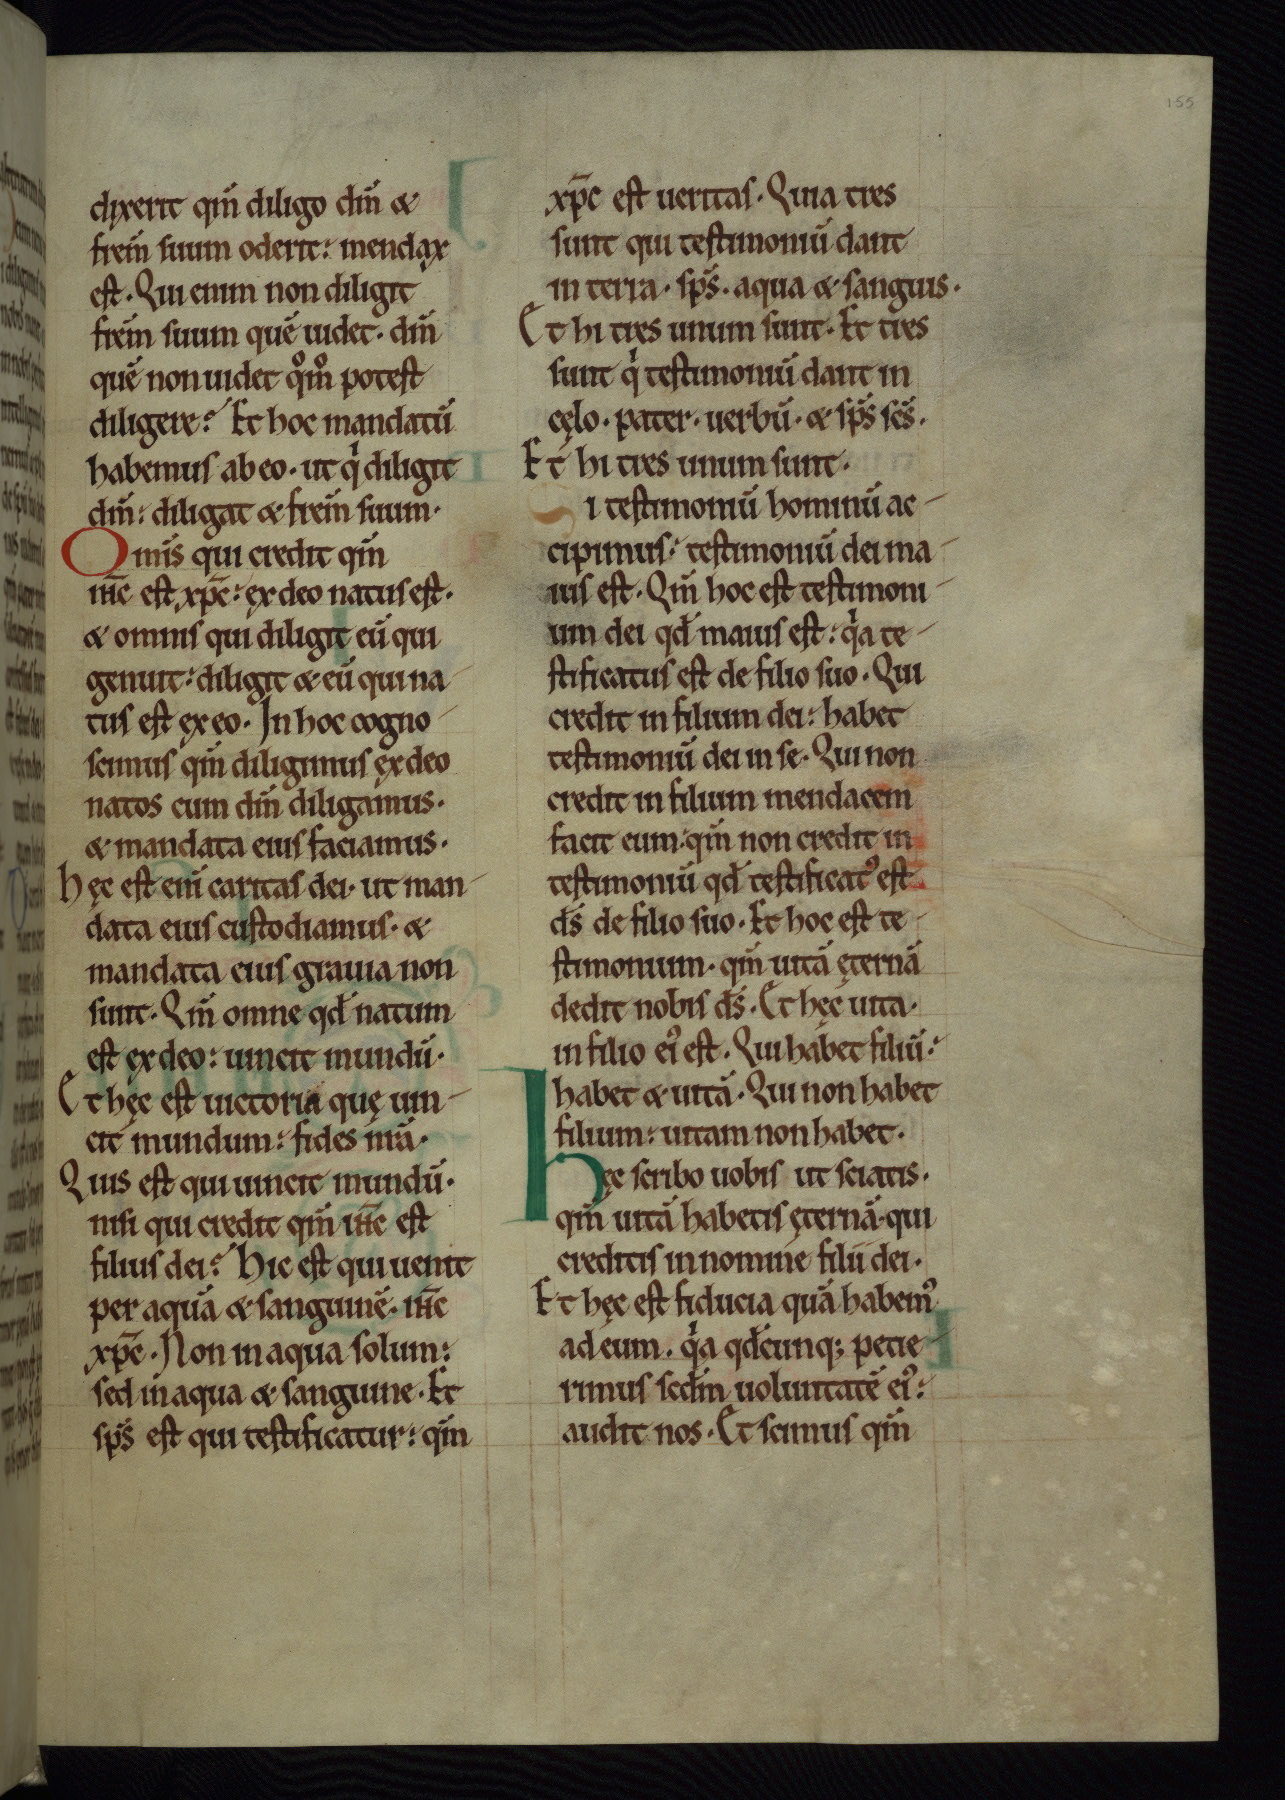 155
dixerit qm̄ diligo dm̄ &
frem̄ suum oderit: mendax
est. Qui enim non diligit
frem̄ suum quē uidet. dm̄
quē non uidet qͦmͦ potest
diligere? Et hoc mandatū
habemus ab eo. ut qͥ diligit
dm̄: diligat & frem̄ suum.
Omīs qui credit qm̄
ihc̄ est xpc̄: ex deo natus est.
& omnis qui diligit eū qui
genuit: diligit & eū qui na-
tus est ex eo. In hoc cogno-
scimus qm̄ diligimus ex deo
natos cum dm̄ diligamus.
& mandata eius faciamus.
hęc est enī caritas dei. ut man-
data eius custodiamus. &
mandata eius grauia non
sunt. Qm̄ omne qd̄ natum
est ex deo: uincit mundū.
Et hęc est uictoria quę uin-
cit mundum: fides nrā.
Quis est qui uincit mundū.
nisi qui credit qm̄ ihc̄ est
filius dei? Hic est qui uenit
per aquā & sanguinē. ihc̄
xpc̄. Non in aqua solum:
sed in aqua & sanguine. Et
sps̄ est qui testificatur: qm̄
xpc̄ est ueritas. Quia tres
sunt qui testimoniū dant
in terra. sps̄. aqua & sanguis.
Et hi tres unum sunt. Et tres
sunt qͥ testimoniū dant in
cęlo. pater. uerbū. & sps̄ scs̄.
Et hi tres unum sunt.
Si testimoniū hominū ac-
cipimus: testimoniū dei ma-
ius est. Qm̄ hoc est testimoni-
um dei qd̄ maius est: qͥa te-
stificatus est de filio suo. Qui
credit in filium dei: habet
testimoniū dei in se. Qui non
credit in filium mendacem
facit eum: qm̄ non credit in
testimoniū qd̄ testificatꝰ est
ds̄ de filio suo. Et hoc est te-
stimonium. qm̄ uitā ęternā
dedit nobis ds̄. Et hęc uita.
in filio eiꝰ est. Qui habet filiū:
habet & uitā. Qui non habet
filium: uitam non habet.
Hęc scribo uobis ut sciatis.
qm̄ uitā habetis ęternā. qui
creditis in nomine filii dei.
Et hęc est fiducia quā habemꝰ
ad eum. qͥa qd̄cunq; petie-
rimus secd̄m uoluntatē eiꝰ:
audit nos. Et scimus qm̄